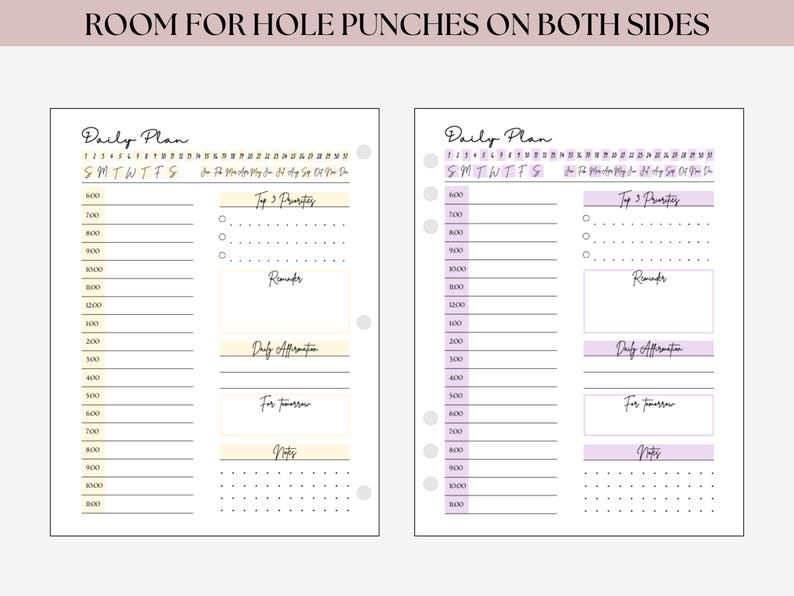 ROOM FOR HOLE PUNCHES ON BOTH SIDES
Daily Plan
1 2 3 4 5 6 7 8 9 10 11 12 13 14 15 16 17 18 19 20 21 22 23 24 25 26 27 28 29 30 31
S M T W T F S Jan Feb Mar Apr May Jun Jul Aug Sep Oct Nov Dec
6:00
7:00
8:00
9:00
10:00
11:00
12:00
1:00
2:00
3:00
4:00
5:00
6:00
7:00
8:00
9:00
10:00
11:00
Top 3 Priorities
Reminder
Daily Affirmation
For tomorrow
Notes
Daily Plan
1 2 3 4 5 6 7 8 9 10 11 12 13 14 15 16 17 18 19 20 21 22 23 24 25 26 27 28 29 30 31
S M T W T F S Jan Feb Mar Apr May Jun Jul Aug Sep Oct Nov Dec
6:00
7:00
8:00
9:00
10:00
11:00
12:00
1:00
2:00
3:00
4:00
5:00
6:00
7:00
8:00
9:00
10:00
11:00
Top 3 Priorities
Reminder
Daily Affirmation
For tomorrow
Notes